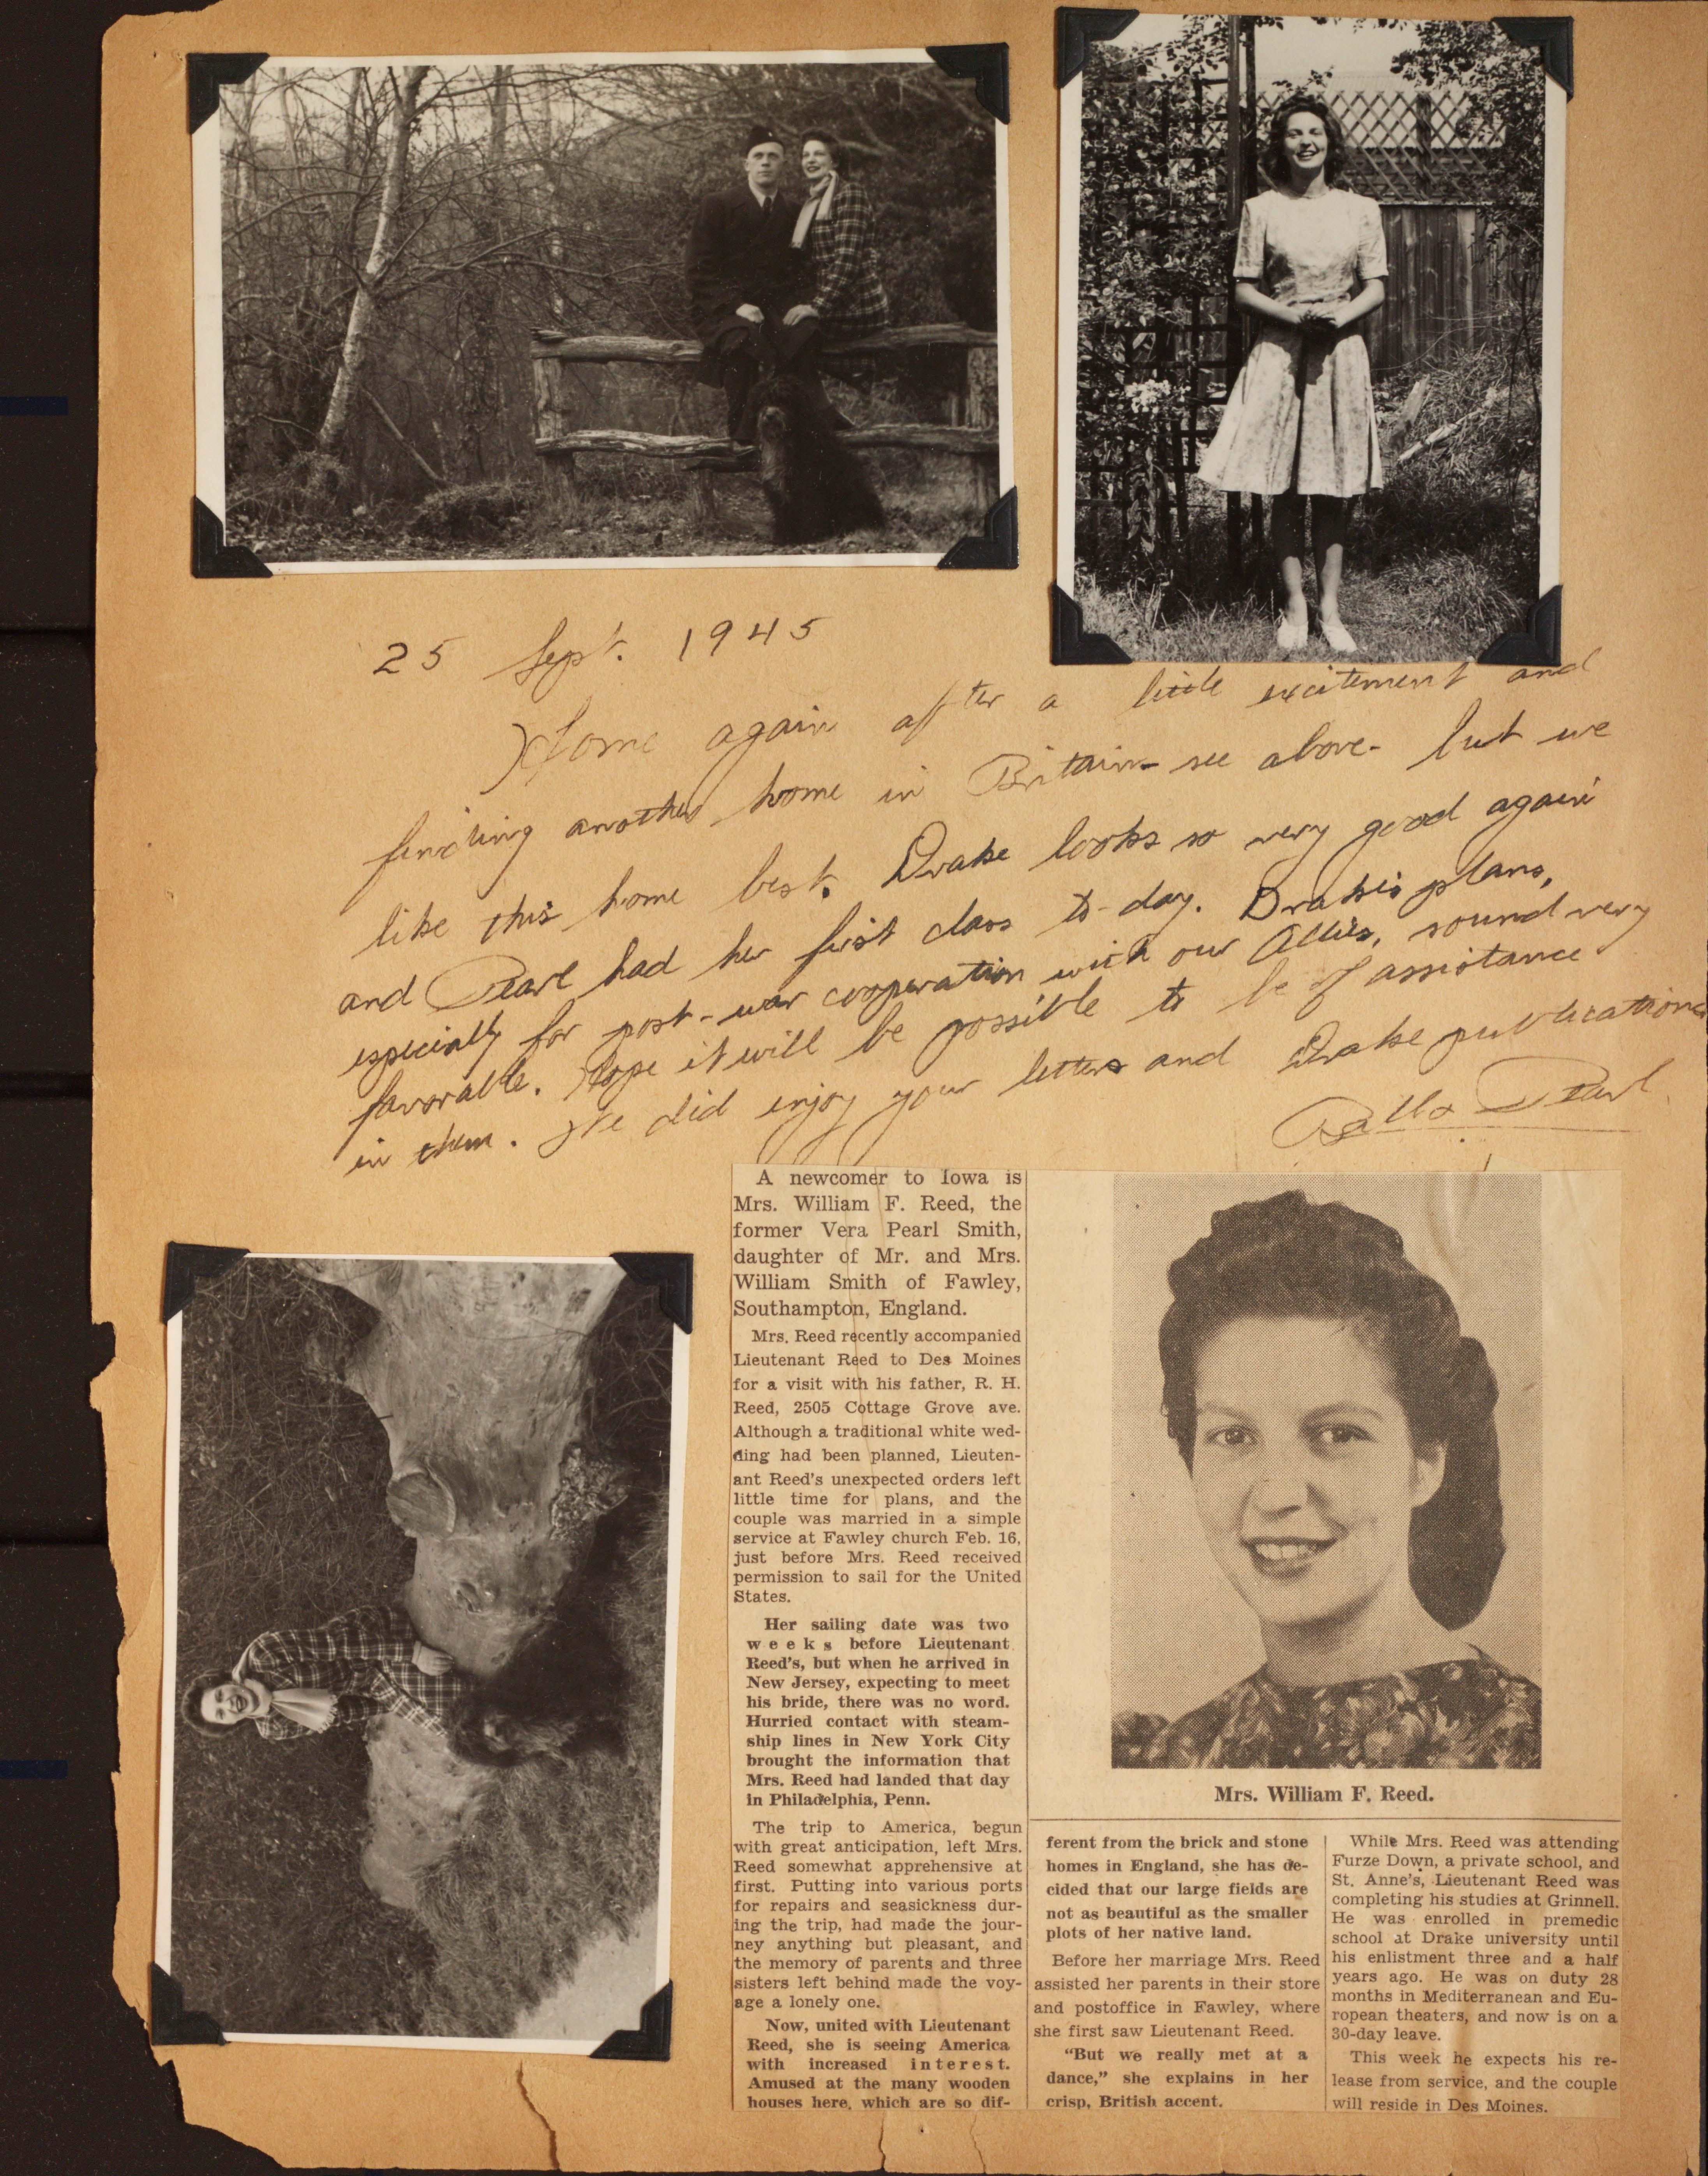 25 Sept. 1945
Home again after a little excitement and
finding another home in Britain - see above - but we
like this home best. Drake looks so very good again
and Pearl had her first class to-day. Drake's plans,
especially for post-war cooperation with our Allies, sound very
favorable. Hope it will be possible to be of assistance
in them. We did enjoy your letters and Drake publications
Pearl
A newcomer to Iowa is
Mrs. William F. Reed, the
former Vera Pearl Smith,
daughter of Mr. and Mrs.
William Smith of Fawley,
Southampton, England.
Mrs. Reed recently accompanied
Lieutenant Reed to Des Moines
for a visit with his father, R. H.
Reed, 2505 Cottage Grove ave.
Although a traditional white wed-
ding had been planned, Lieuten-
ant Reed's unexpected orders left
little time for plans, and the
couple was married in a simple
service at Fawley church Feb. 16,
just before Mrs. Reed received
permission to sail for the United
States.
Her sailing date was two
weeks before Lieutenant
Reed's, but when he arrived in
New Jersey, expecting to meet
his bride, there was no word.
Hurried contact with steam-
ship lines in New York City
brought the information that
Mrs. Reed had landed that day
in Philadelphia, Penn.
The trip to America, begun
with great anticipation, left Mrs.
Reed somewhat apprehensive at
first. Putting into various ports
for repairs and seasickness dur-
ing the trip, had made the jour-
ney anything but pleasant, and
the memory of parents and three
sisters left behind made the voy-
age a lonely one.
Now, united with Lieutenant
Reed, she is seeing America
with increased interest.
Amused at the many wooden
houses here, which are so dif-
Mrs. William F. Reed.
ferent from the brick and stone
homes in England, she has de-
cided that our large fields are
not as beautiful as the smaller
plots of her native land.
Before her marriage Mrs. Reed
assisted her parents in their store
and postoffice in Fawley, where
she first saw Lieutenant Reed.
"But we really met at a
dance," she explains in her
crisp, British accent.
While Mrs. Reed was attending
Furze Down, a private school, and
St. Anne's, Lieutenant Reed was
completing his studies at Grinnell.
He was enrolled in premedic
school at Drake university until
his enlistment three and a half
years ago. He was on duty 28
months in Mediterranean and Eu-
ropean theaters, and now is on a
30-day leave.
This week he expects his re-
lease from service, and the couple
will reside in Des Moines.